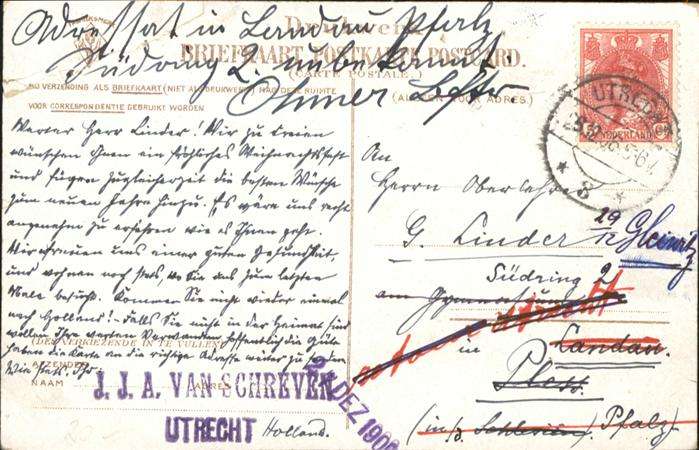 Adressat in Landau Pfalz
Südring 2 unbekannt.
Drukwerk
BRIEFKAART POSTKARTE POSTCARD.
(CARTE POSTALE.)
BIJ VERZENDING ALS BRIEFKAART (NIET ALS DRUKWERK) MAG DEZE RUIMTE
VOOR CORRESPONDENTIE GEBRUIKT WORDEN
(ALLEEN VOOR ADRES.)
UTRECHT
NEDERLAND
Werter Herr Linder! Wir zu dreien
wünschen Ihnen ein fröhliches Weihnachtsfest
und fügen zugleicherzeit die besten Wünsche
zum neuen Jahre hinzu. Es wäre uns recht
angenehm zu erfahren wie es Ihnen geht.
Wir erfreuen uns einer guten Gesundheit,
und wohnen noch stets, wo Sie uns zum letzten
Male besucht. Kommen Sie nicht wieder einmal
nach Holland? Falls Sie nicht in der Heimat sind
wollen Ihre werten Verwandten hoffentlich die Güte
haben die Karte an die richtige Adresse weiter zu senden.
Wie stets, Ihr
(DEN VERKIEZENDE IN TE VULLEN)
AFZENDER
NAAM
ADRES
J. J. A. VAN SCHREVEN
UTRECHT Holland.
DEZ 190
An
Herrn Oberlehrer
G. Linder
29/12 Gleiwitz
Südring 2
am Gymnasium
in Landau.
Pless
(in Schlesien) Pfalz